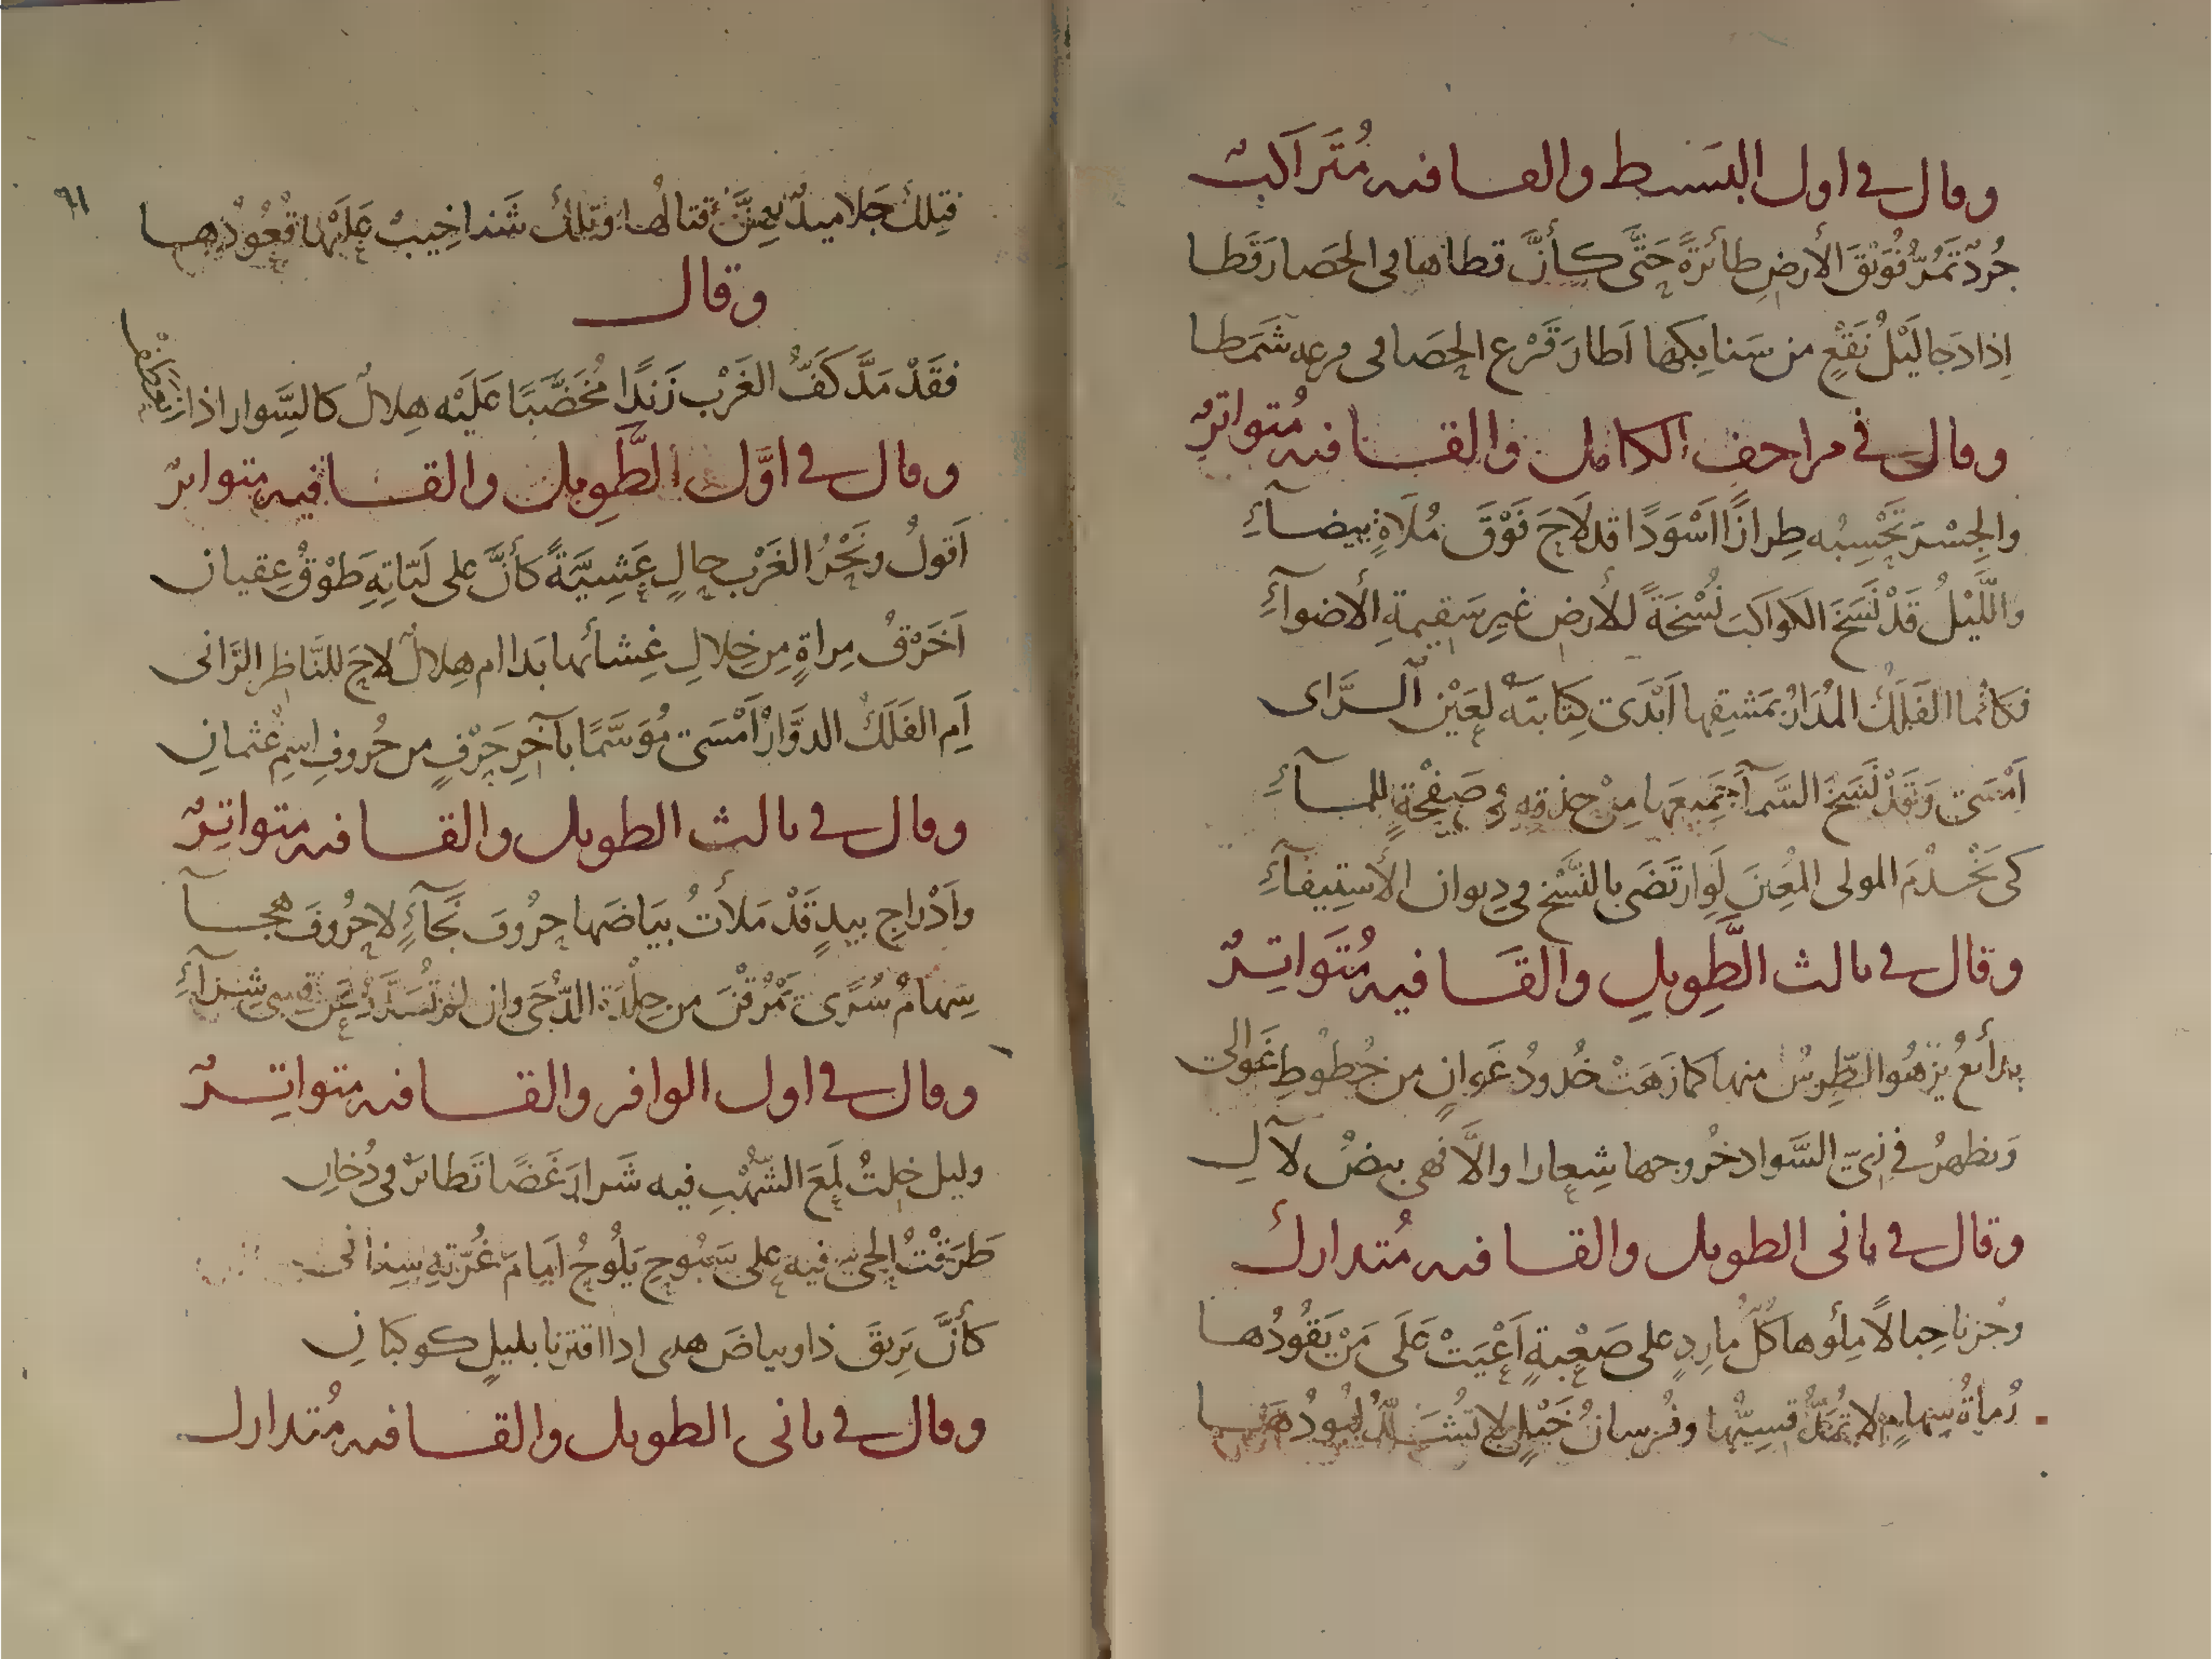 وقال في اول البسيط والقافيه مُتَراكبٌ
جُردٌ تَمُرُّ فُوَيْقَ الأرضِ طائرَةً حَتَّى كأنَّ قطاها في الحَصا رَقَطا
اِذا دَجا لَيْلُ نَقْعٍ من سَنابِكِها اَطارَ قَرْع الحَصا في فرعه شَمَطا
وقال في مزاحف الكامل والقافيه مُتواترٌ
والجِسْرَ تَحْسِبُه طِرازًا اَسْوَدًا قد لاَحَ فَوْقَ مُلاَةٍ بيضآءِ
وَاللَّيْلُ قَدْ نَسَخَ الكَواكبَ نُسْخَةً للأرض غيرِ سَقيمةِ الأضوآءِ
فكانّما الفَلَكُ المُدَارُ بمَشقِها اَبْدَى كِتَابَتَهُ لِعَيْنِ الرَّاى
اَمْسَى وَقَدْ نَسَخَ السَّمآءَ جَميعَها مِنْ حِذقِهِ في صَفْحَةٍ للمآءِ
كى يَخْدُمَ المولى المُعينَ لَوِ ارتَضَى بالنَّسْخ في دِيوان الأستِيفآءِ
وقال في ثالث الطَّوِيلِ والقَافيه مُتَواتِرٌ
بدائعُ يَزْهُوا الطِّرسُ منها كما زَهَتْ خُدودُ غَوانٍ من خُطوطِ غَوالى
وَيظهرُ في زِىّ السَّواد خُروجها شِعارا والاَّ فهى بيضُ لآلِ
وقال في ثانى الطويل والقافيه مُتدارك
وحُزنا حِبالاً مِلؤها كُلُّ مارِدٍ على صَعْبةٍ اَعْيَتْ عَلَى مَنْ يَقُودُها
رُماةُ سِهامٍ لا تُمَلُّ قسِيُّها وفُرسانُ خَيْلٍ لا تُشَدُّ لُبُودُها
٩١
فتِلكَ جَلاميدٌ يعِزُّ قتالُها وتلكَ شَناخيبٌ عَلَيْها قُعُودُها
وقال
فقَدْ مَدَّ كَفُّ الغَرْبِ زَندًا مُخَضَّبًا عَلَيْه هِلالٌ كالسِّوار اذا
وقال في اوّل الطَّوِيل والقافيه متواترٌ
اَقولُ ونَحْرُ الغَرْبِ حالٍ عَشِيَّةً كأنَّ على لَبّاتِهِ طَوْقُ عِقيان
اَخَرْقُ مِراةٍ مِن خِلالِ غِشائها بَدا ام هِلالٌ لاحَ للنَّاظِر الرَّانى
اَمِ الفَلَكُ الدوَّارُ اَمْسَى مُوَسَّمًا بآخرِ حَرْفٍ من حُروفِ اسمِ عُثمانِ
وقال في ثالث الطويل والقافيه متواتِرٌ
واَدْراجِ بيدٍ قَدْ مَلأتُ بيَاضَها حروُفَ نَجآءٍ لا حُروُفَ هجآ
سِهامُ سُرًى تَمْرُقْنَ من جِلْدَة الدُّجَى وان لم تُسَدَّدْ عَن قِسِى شِرآءِ
وقال في اول الوافر والقافيه متواتِرٌ
وليل خِلتُ لَمعَ الشُّهْبِ فيه شَرارَ غَضًا تَطايَرَ في دُخانِ
طَرَقْتُ الحىَّ فيه على سَبُوحٍ يَلُوحُ اَمامَ غُرّتهِ سِنانى
كأنَّ بَرِيقَ ذا وبياضَ هذى اذا اقترنا بليلٍ كوكبانِ
وقال في ثانى الطويل والقافيه مُتدارك